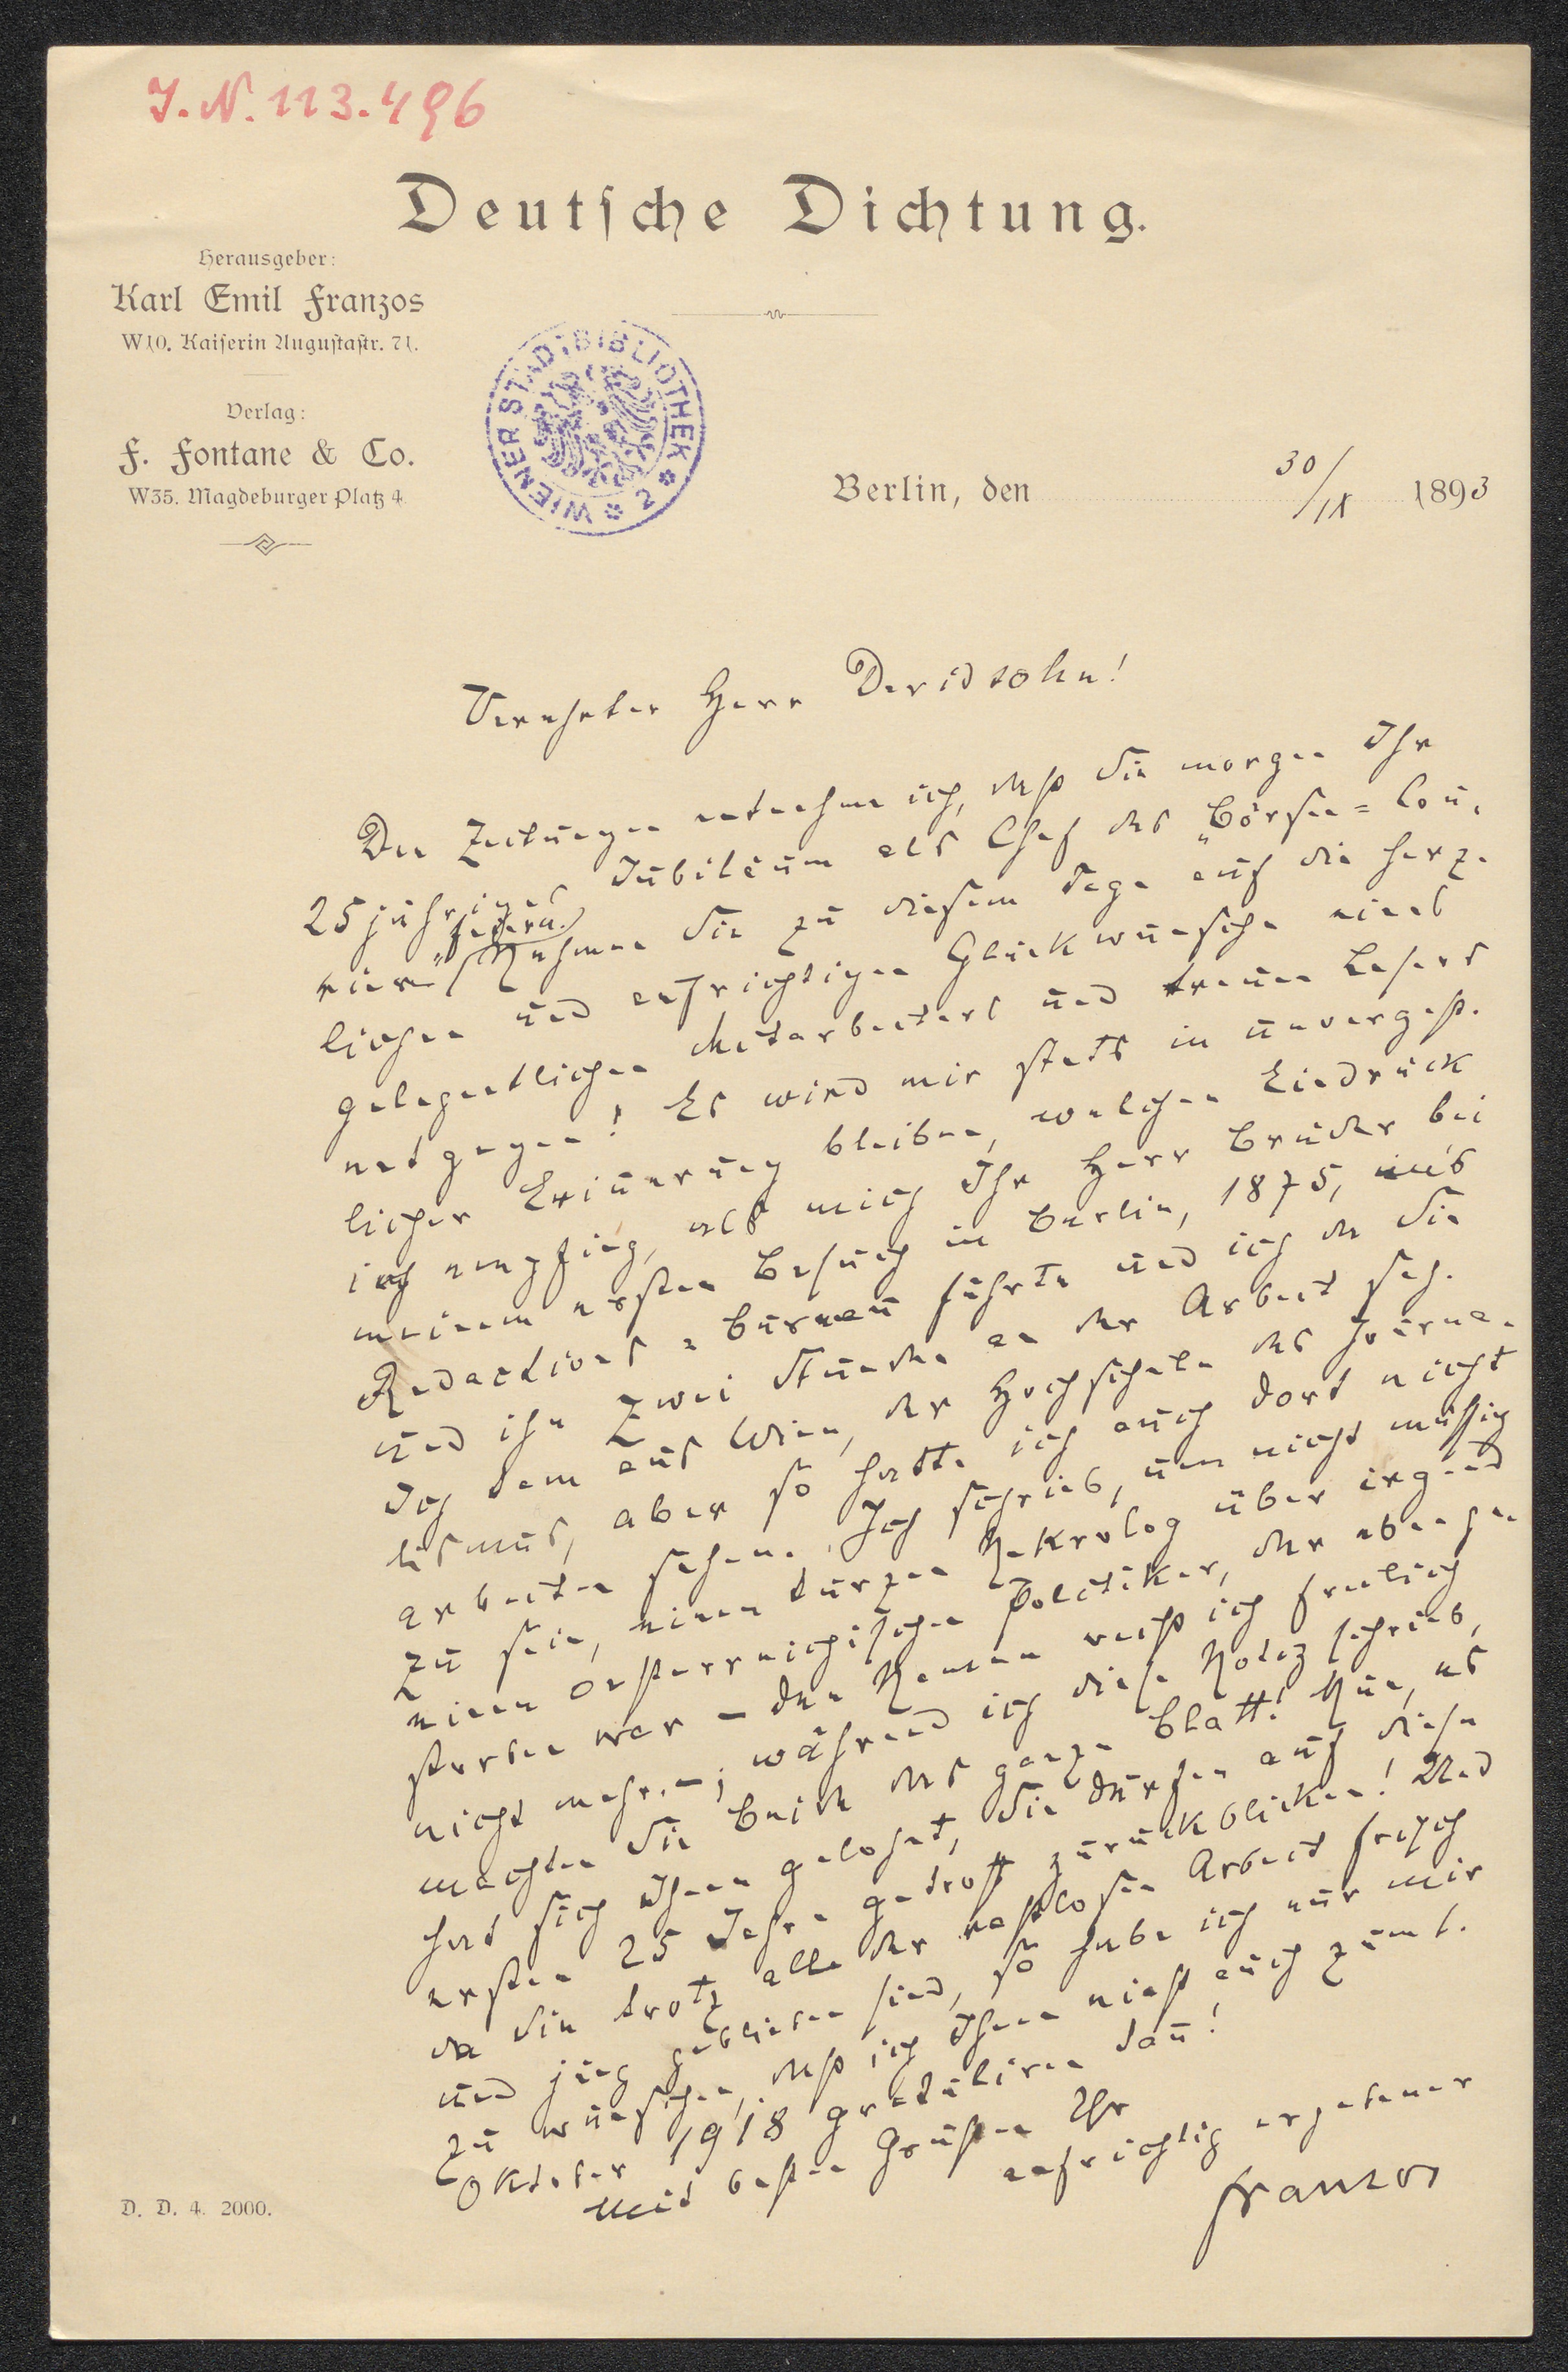 J. N. 113.496
Deutſche Dichtung.
Herausgeber:
Karl Emil Franzos
W10. Kaiſerin Auguſtaſtr. 71.
Verlag:
F. Fontane & Co.
W35. Magdeburger Platz 4.
WIENER STADTBIBLIOTHEK 2
Berlin, den 30/IX 1893
Verehrter Herr Davidsohn!
Den Zeitungen entnehme ich, daß Sie morgen Ihr
25jähriges Jubiläum als Chef des „Börsen=Cou-
rier“ feiern. Nehmen Sie zu diesem Tage auch die herz-
lichen und aufrichtigen Glückwünsche eines
gelegentlichen Mitarbeiters und treuen Lesers
entgegen! Es wird mir stets in unvergeß-
licher Erinnerung bleiben, welchen Eindruck
ich empfing, als mich Ihr Herr Bruder bei
meinem ersten Besuch in Berlin, 1875, in's
Redactions=Bureau führte und ich da Sie
und ihn zwei Stunden an der Arbeit sah.
Ich kam aus Wien, der Hochschule des Journa-
lismus, aber so hatte ich auch dort nicht
arbeiten sehen. Ich schrieb, um nicht müßig
zu sein, einen kurzen Nekrolog über irgend
einen oesterreichischen Politiker, der eben ge-
storben war – den Namen weiß ich freilich
nicht mehr –; während ich diese Notiz schrieb,
machten Sie Beide das ganze Blatt! Nun, es
hat sich Ihnen gelohnt, Sie dürfen auf diese
ersten 25 Jahre getrost zurückblicken! Und
da Sie trotz all der rastlosen Arbeit frisch
und jung geblieben sind, so habe ich nur mir
zu wünschen, daß ich Ihnen nicht auch zum 1.
Oktober 1918 gratuliren kann!
Mit besten Grüßen Ihr
aufrichtig ergebener
Franzos
D. D. 4. 2000.